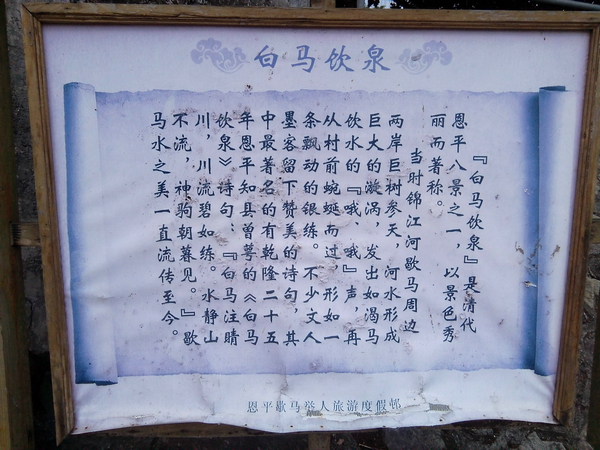 白马饮泉
『白马饮泉』是清代
恩平八景之一，以景色秀
丽而著称。
当时锦江河歇马周边
两岸巨树参天，河水形成
巨大的漩涡，发出如渴马
饮水的『哦、哦』声，再
从村前蜿蜒而过，形如一
条飘动的银练。不少文人
墨客留下赞美的诗句，其
中最著名的有乾隆二十五
年恩平知县曾萼的《白马
饮泉》诗句：『白马注睛
川，川流碧如练。水静山
不流，神驹朝暮见。』歇
马水之美一直流传至今。
恩平歇马举人旅游度假邨